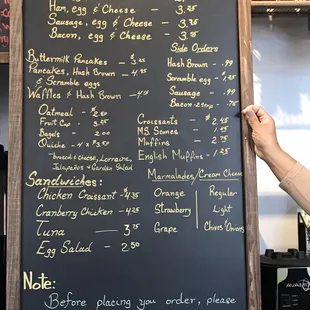 Ham, egg & Cheese - 3.75
Sausage, egg & Cheese - 3.75
Bacon, egg & Cheese - 3.75
Buttermilk Pancakes - 3.25
Pancakes, Hash Brown - 4.25
& Scramble eggs
Waffles & Hash Brown - 4.25
Oatmeal - $2.50
Fruit Cup - 3.25
Bagels - 2.00
Quiche - 4 x $3.50
- broccoli cheese, Lorraine,
Jalapeños & Garden Salad
Sandwiches:
Chicken Croissant - 4.25
Cranberry Chicken - 4.25
Tuna - 3.75
Egg Salad - 2.50
Side Orders
Hash Brown - .99
Scramble egg - 1.25
Sausage - .99
Bacon - 2 strip - .75
Croissants - $2.25
MS. Scones - 1.75
Muffins - 2.75
English Muffins - 1.25
Marmalades/Cream Cheese
Orange Regular
Strawberry Light
Grape Chives 'Onions
Note:
Before placing you order, please